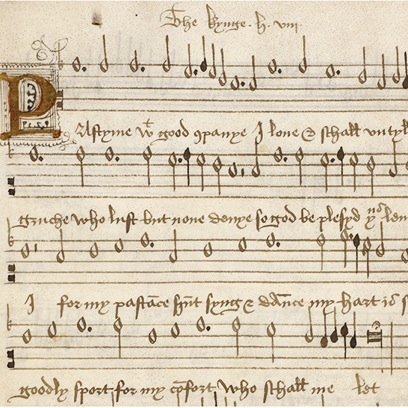 The kynge . h . viii .
PAstyme wt good cpanye I love & schall vntyll
gruche who lust but none denye so god be plesyd
I for my pastāce hūt syng & dānce my hart is s
goodly sport for my cōfort who schall me let